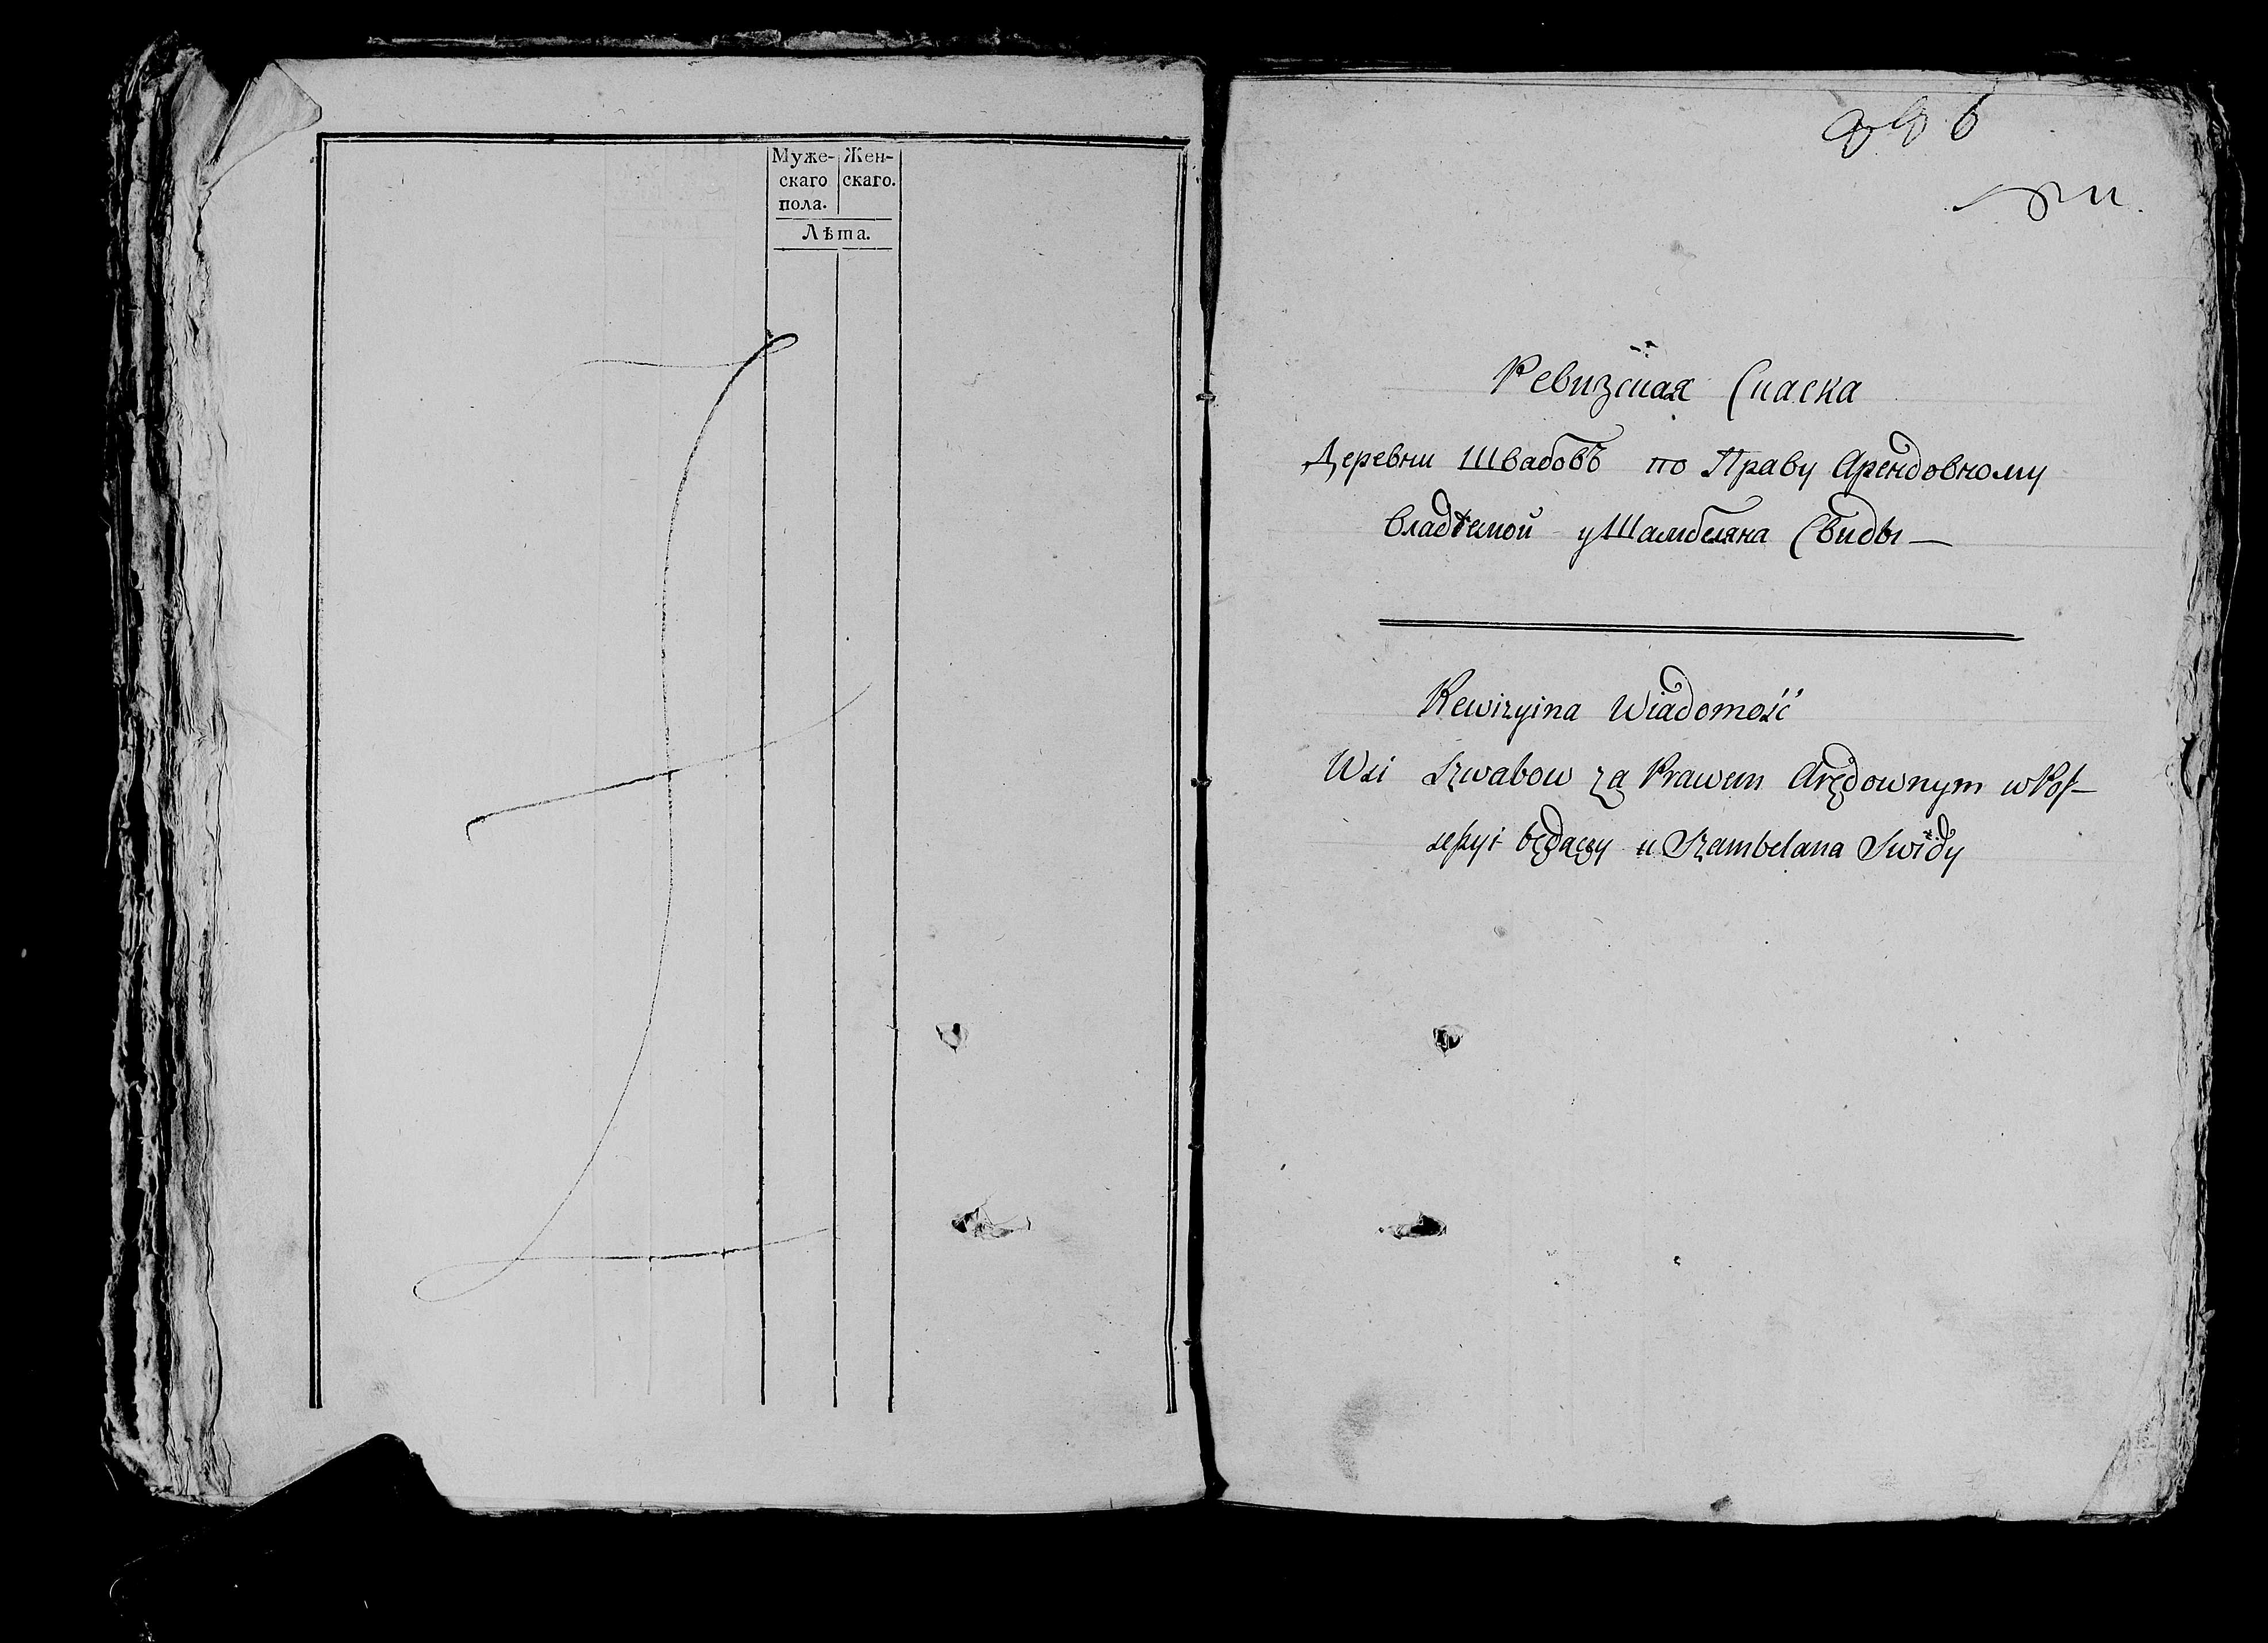 Муже- Жен-
скаго скаго.
пола.
Лѣта.
Ревизская Сказка
Деревни Швабовъ по Праву Арендовному
владѣемой у Шамбеляна Свиды —
Rewizyina Wiadomość
Wsi Szwabow za Prawem Arędownym w Pos-
sessyi będącey u Szambelana Swidy